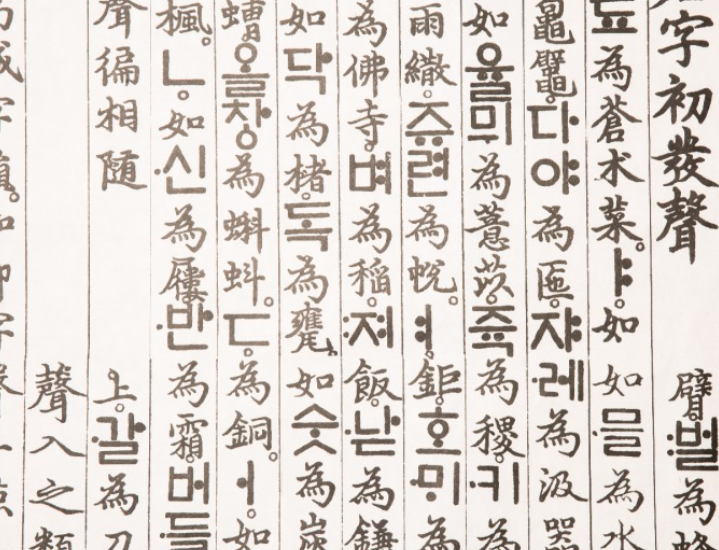 字初發聲
臂。벌為
為蒼朮菜。ㅑ。如
如·믈為水
鼊。다야為匜。쟈
·레為汲器
如율믜為薏苡。쥭
為稷。·키為
雨繖。쥬련為帨。ㅕ。
鉅。호·ᄆᆡ為
為佛寺。·벼為稲。:져
飯。·낟為鎌
如닥為楮。독為甕。
如숫為炭
螬。올창為蝌蚪。ㄷ。
為銅。ㅓ。如
楓。ㄴ。如·신為屨。·반
為霜。버들
聲徧相随
上。·갈為刀
聲入之類